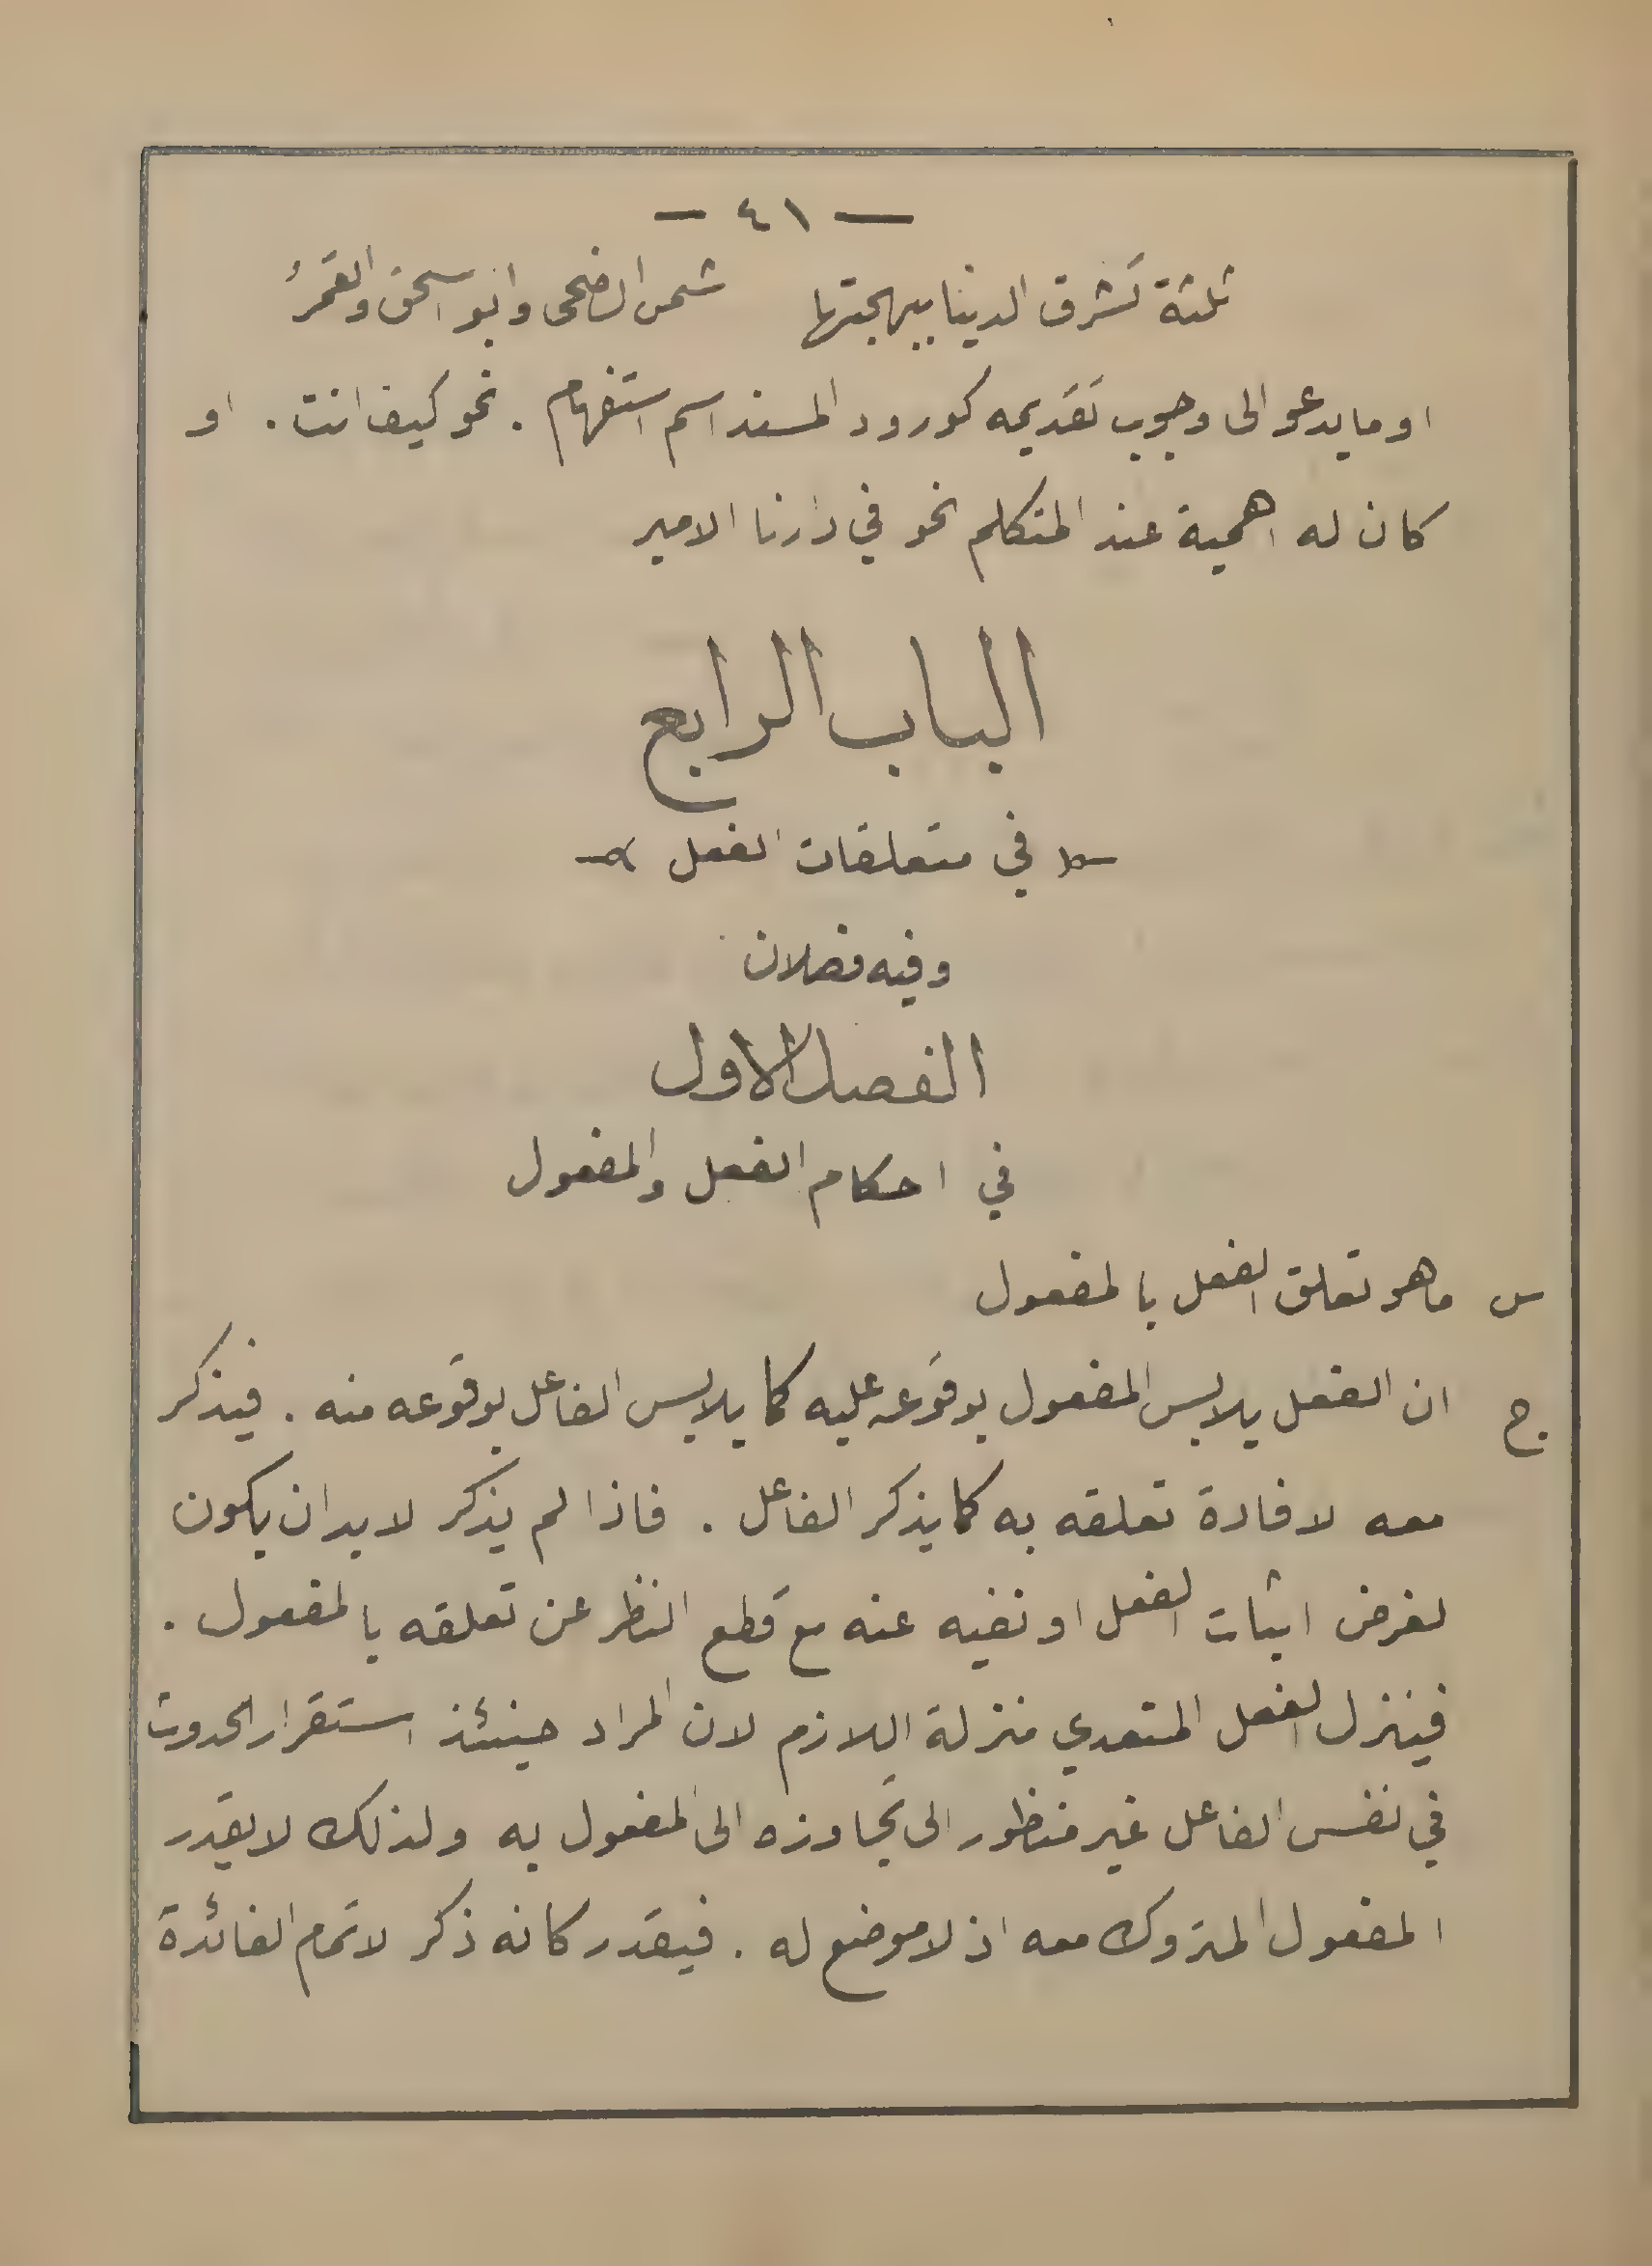 — ٤١ —
ثلثة تشرق الدينا ببهجتها شمس الضحى وابو اسحق والقمرُ
او ما يدعو الى وجوب تقديمه كورود المسند اسم استفهام . نحو كيف انت . او
كان له اهمية عند المتكلم نحو في دارنا الامير
الباب الرابع
في متعلقات الفعل
وفيه فصلان
الفصل الاول
في احكام الفعل والمفعول
س ما هو تعلق الفعل بالمفعول
ج ان الفعل يلابس المفعول بوقوعه عليه كما يلابس الفاعل بوقوعه منه . فيذكر
معه لافادة تعلقه به كما يذكر الفاعل . فاذا لم يذكر لا بد ان يكون
لغرض اثبات الفعل او نفيه عنه مع قطع النظر عن تعلقه بالمفعول .
فينزل الفعل المتعدي منزلة اللازم لان المراد حينئذ استقرار الحدوث
في نفس الفاعل غير منظور الى تجاوزه الى المفعول به ولذلك لا يقدر
المفعول المتروك معه اذ لا موضع له . فيقدر كانه ذكر لاتمام الفائدة